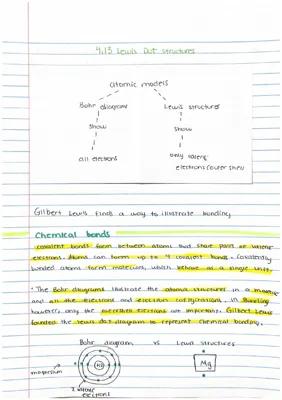 4.13 Lewis Dot structures
atomic models
Bohr diagrams Lewis structures
show show
all electrons only valence
electrons (outer shell)
Gilbert Lewis finds a way to illustrate bonding
Chemical bonds
covalent bonds form between atoms that share pairs of valence
electrons. Atoms can form up to 4 covalent bonds. Covalently
bonded atoms form molecules, which behave as a single unit.
• The Bohr diagrams illustrate the atomic structures in a
and all the electrons and electron configurations, in Bonding
however, only the electrons are important. Gilbert Lewis
founded the lewis dot diagram to represent chemical bonding.
Bohr diagram vs Lewis structures
magnesium
Mg
2 valence
electrons